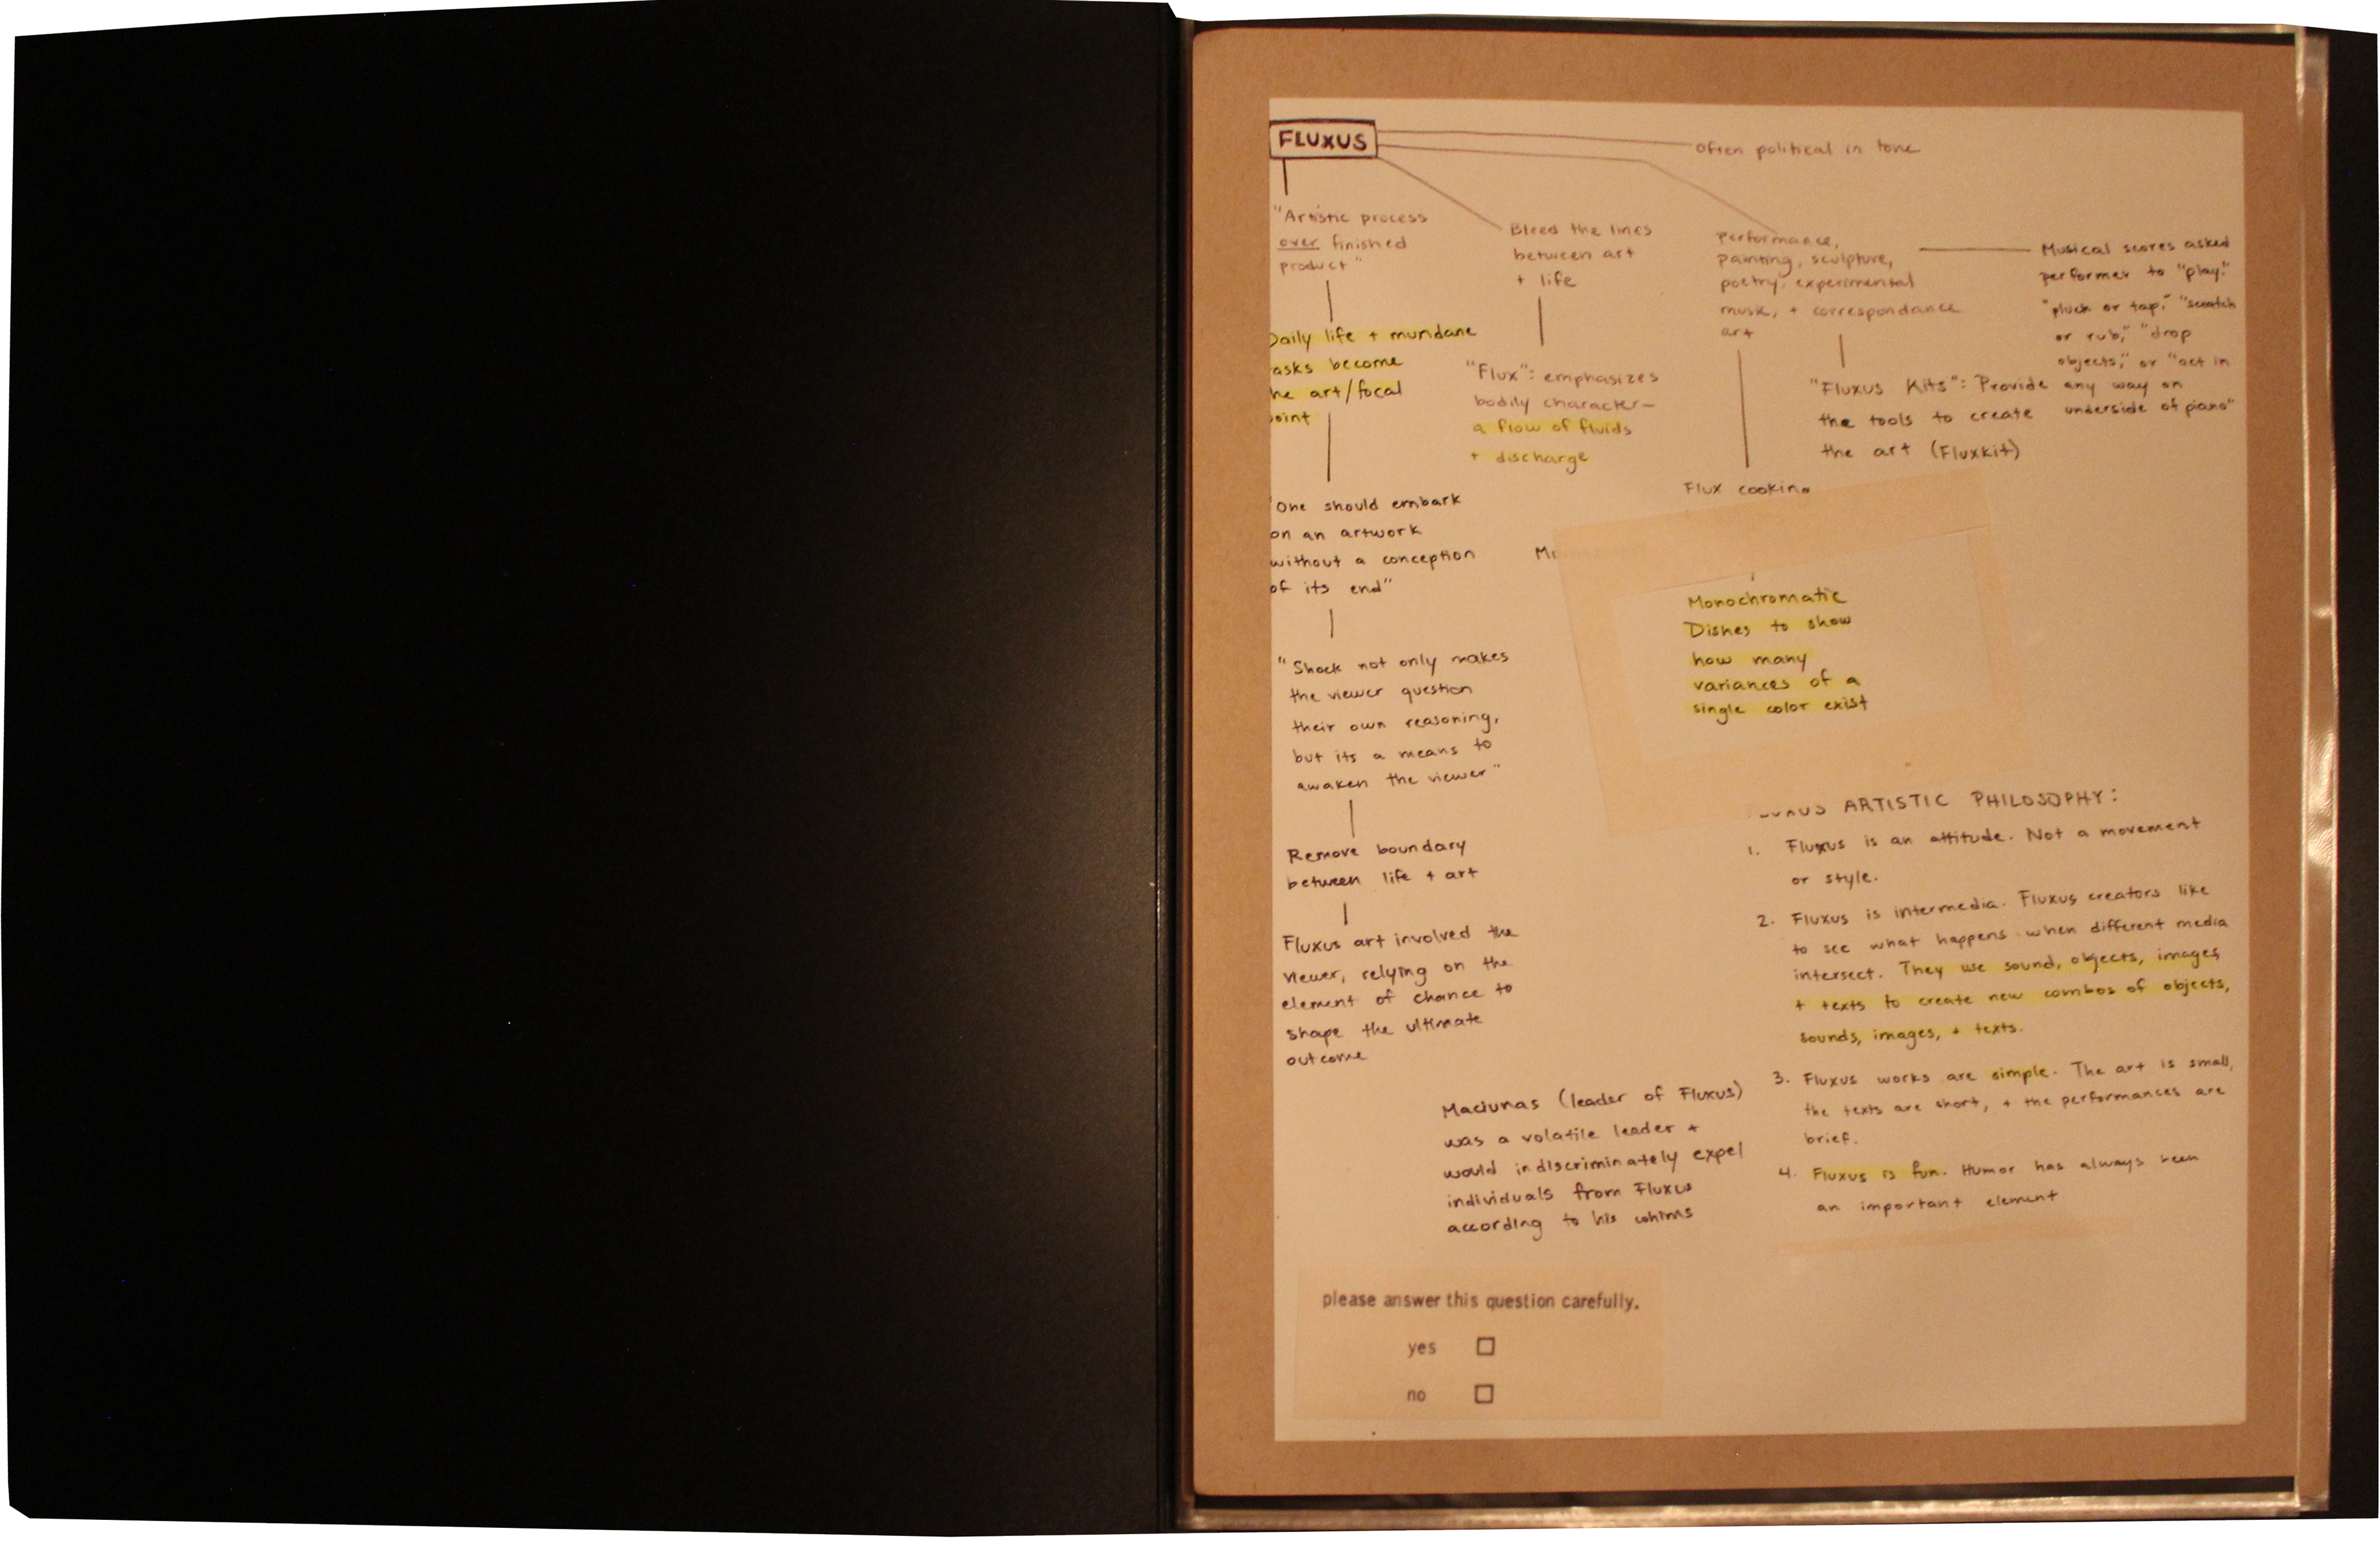 FLUXUS
often political in tone
"Artistic process
over finished
product"
Daily life + mundane
asks become
he art/focal
oint
"One should embark
on an artwork
without a conception
of its end"
"Shock not only makes
the viewer question
their own reasoning,
but its a means to
awaken the viewer"
Remove boundary
between life + art
Fluxus art involved the
viewer, relying on the
element of chance to
shape the ultimate
outcome
Bleed the lines
between art
+ life
"Flux": emphasizes
bodily character—
a flow of fluids
+ discharge
Performance,
painting, sculpture,
poetry, experimental
music, + correspondance
art
Musical scores asked
performer to "play."
"pluck or tap," "scratch
or rub," "drop
objects," or "act in
any way on
underside of piano"
"Fluxus Kits": Provide
the tools to create
the art (Fluxkit)
Flux cooking
Monochromatic
Dishes to show
how many
variances of a
single color exist
ARTISTIC PHILOSOPHY:
1. Fluxus is an attitude. Not a movement
or style.
2. Fluxus is intermedia. Fluxus creators like
to see what happens when different media
intersect. They use sound, objects, images,
+ texts to create new combos of objects,
sounds, images, + texts.
3. Fluxus works are simple. The art is small,
the texts are short, + the performances are
brief.
4. Fluxus is fun. Humor has always been
an important element
Maciunas (leader of Fluxus)
was a volatile leader +
would indiscriminately expel
individuals from Fluxus
according to his whims
please answer this question carefully.
yes
no